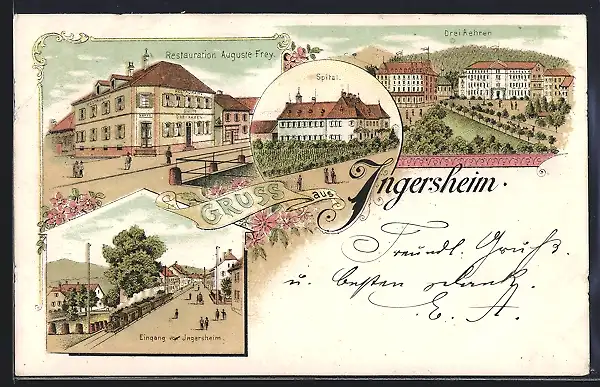 Restauration Auguste Frey.
Drei Aehren
Spital.
GRUSS aus
Ingersheim.
Freundl. Gruß
u. besten
E. A.
Eingang von Ingersheim.